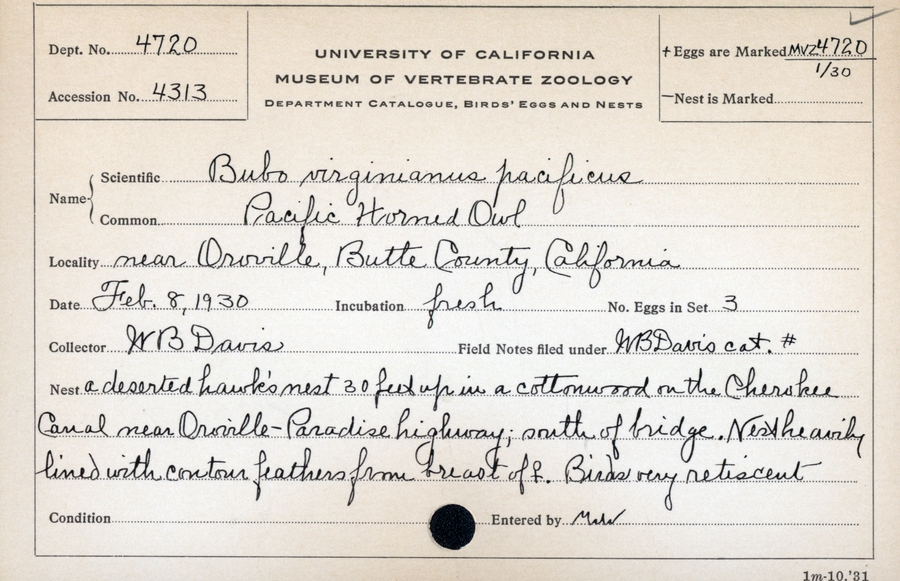 Dept. No. 4720
Accession No. 4313
UNIVERSITY OF CALIFORNIA
MUSEUM OF VERTEBRATE ZOOLOGY
DEPARTMENT CATALOGUE, BIRDS' EGGS AND NESTS
+ Eggs are Marked MVZ 4720
1/30
— Nest is Marked
Name
Scientific Bubo virginianus pacificus
Common Pacific Horned Owl
Locality near Oroville, Butte County, California
Date Feb. 8, 1930 Incubation fresh No. Eggs in Set 3
Collector WB Davis Field Notes filed under WB Davis cat. #
Nest a deserted hawk's nest 30 feet up in a cottonwood on the Cherokee
Canal near Oroville-Paradise highway; south of bridge. Nest heavily
lined with contour feathers from breast of ♀. Birds very retiscent
Condition Entered by
1m-10,'31